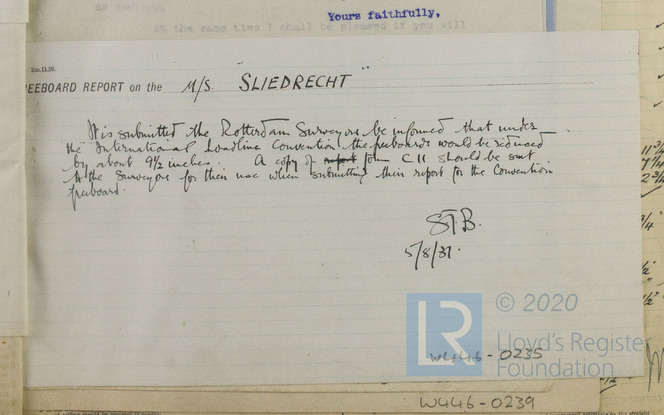 Yours faithfully,
At the same time I shall be pleased if you will
EEBOARD REPORT on the M/S. "SLIEDRECHT"
It is submitted the Rotterdam Surveyors be informed that under
the International Loadline Convention the freeboards would be reduced
by about 9½ inches. A copy of report form C11 should be sent
to the Surveyors for their use when submitting their report for the Convention
freeboard.
S.T.B.
5/8/31.
© 2020
LR
Lloyd's Register
Foundation
W446-0235
W446-0239